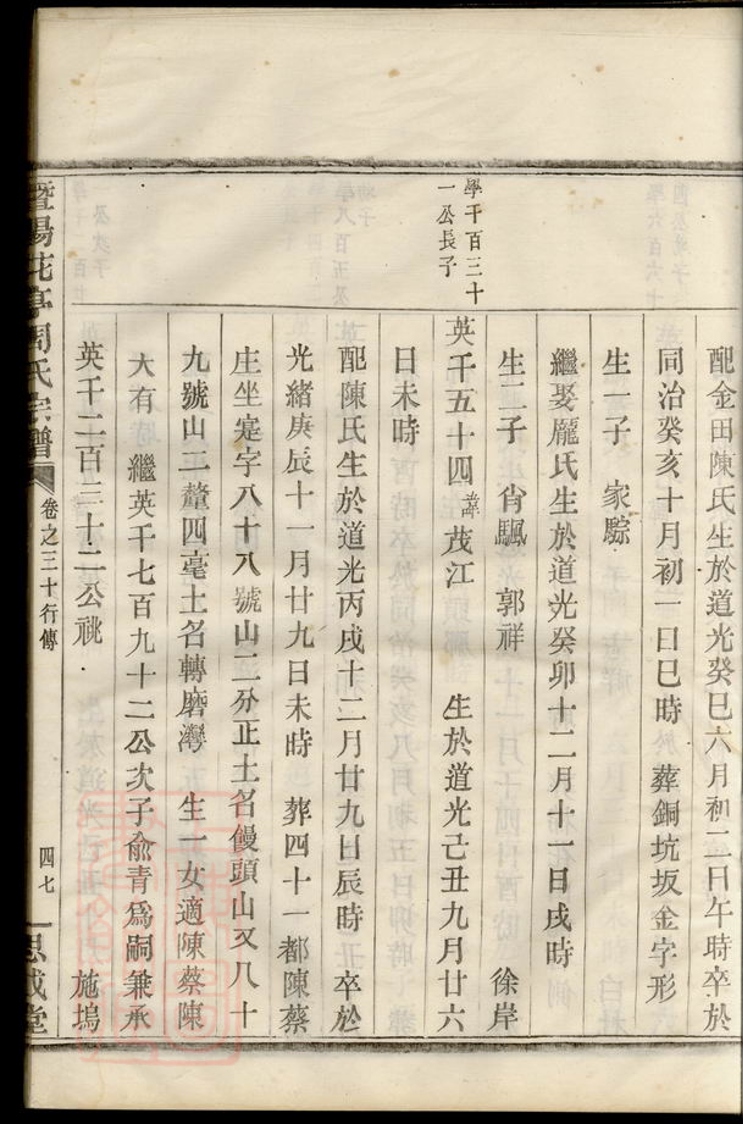 配金田陳氏生於道光癸巳六月初二日午時卒於
同治癸亥十月初一日巳時　葬銅坑坂金字形
生一子　家騌
繼娶龐氏生於道光癸卯十二月十一日戌時
生二子　肖颿　郭祥　徐岸
學千百三十
一公長子
英千五十四諱茂江　生於道光己丑九月廿六
日未時
配陳氏生於道光丙戌十二月廿九日辰時　卒於
光緒庚辰十一月廿九日未時　葬四十一都陳蔡
庄坐寔字八十八號山二分正土名饅頭山又八十
九號山二釐四毫土名轉磨灣　生一女適陳蔡陳
大有　繼英千七百九十二公次子兪青爲嗣兼承
英千二百三十二公祧　施塢
暨陽花亭周氏宗譜
卷之三十行傳
四七
思成堂